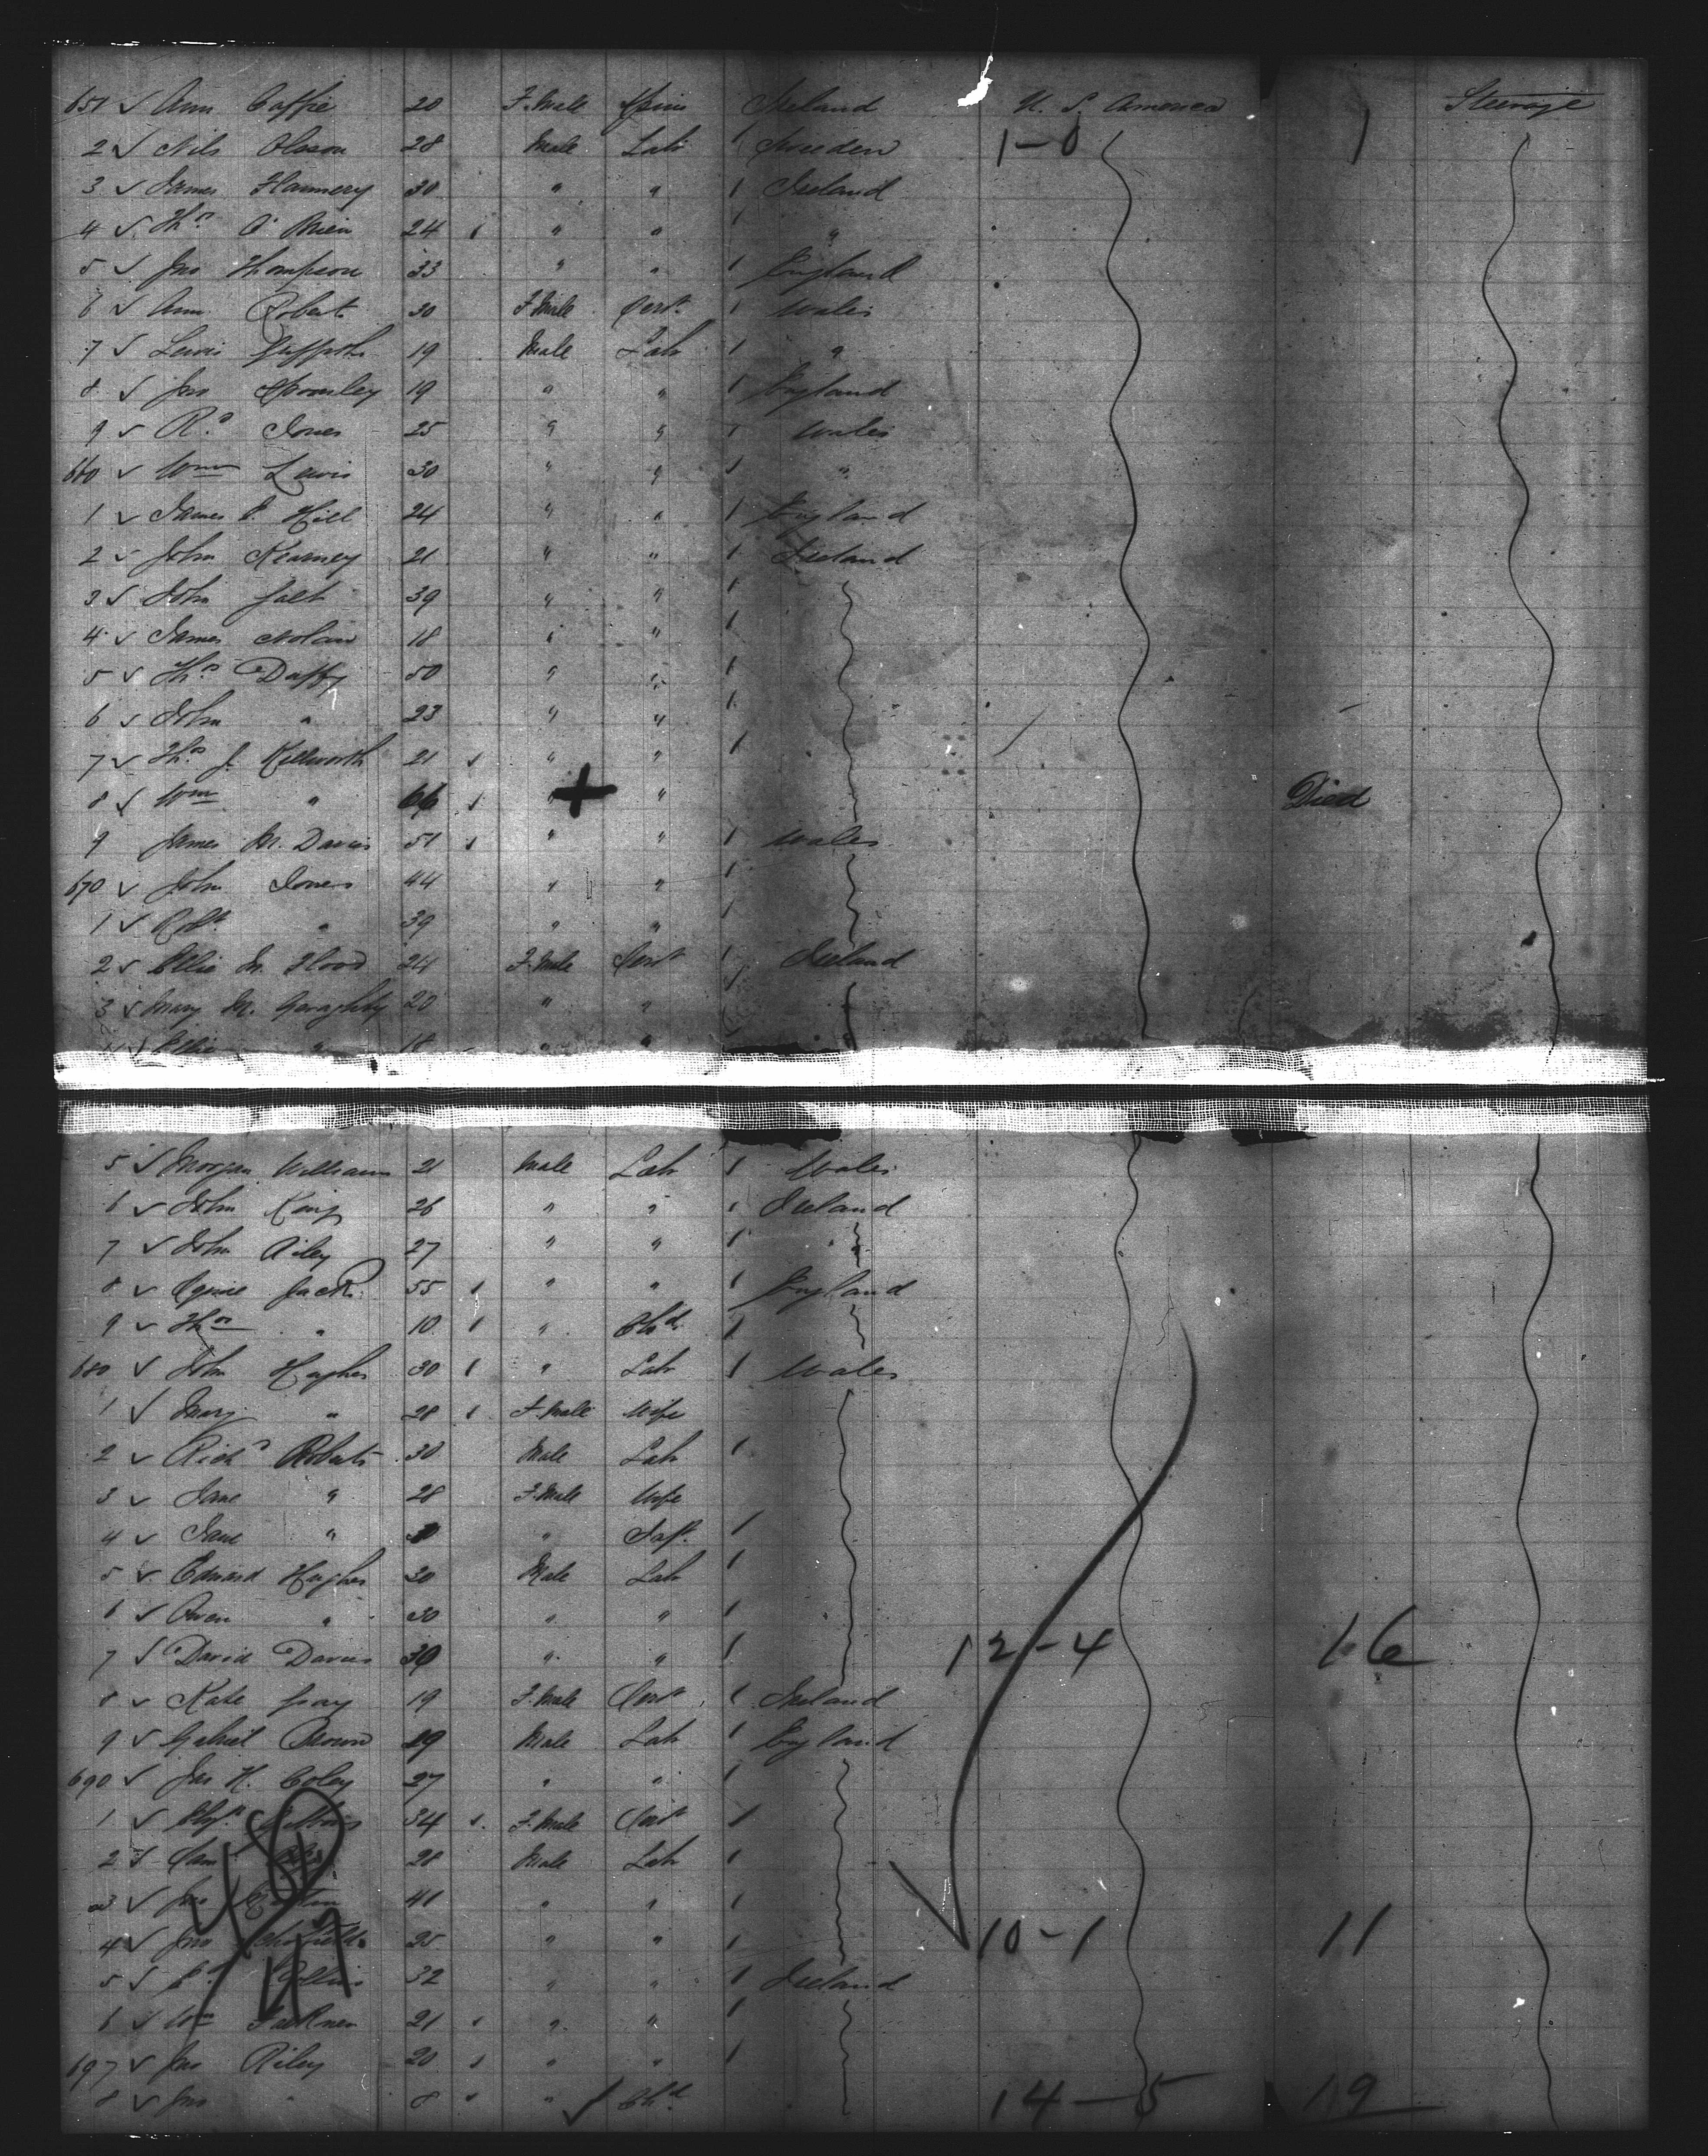 651 ✓ Ann Caffie 20 F.Male Spin Ireland U. S. America Steerage
2 ✓ Nils Olsson 28 Male Lab 1 Sweden 1-0 1
3 ✓ James Flannery 30 " " 1 Ireland
4 ✓ Thos O'Brien 24 " " 1 "
5 ✓ Jno Thompson 33 " " 1 England
6 ✓ Ann Roberts 30 F.Male Servt 1 Wales
7 ✓ Lewis Griffiths 19 Male Lab 1 "
8 ✓ Jno 19 " " 1 England
9 ✓ Rd Jones 25 " " 1 Wales
660 ✓ Wm Lewis 30 " " 1 "
1 ✓ James P. Hill 24 " " 1 England
2 ✓ John Kearney 21 " " 1 Ireland
3 ✓ John Galt 39 " " 1
4 ✓ James Nolan 18 " " 1
5 ✓ Thos Duffy 50 " " 1
6 ✓ John " 23 " " 1
7 ✓ Thos J. Killworth 21 " " 1
8 ✓ Wm " 66 " + " Died
9 James M. Davis 51 " " 1 Wales
670 ✓ John Jones 44 " " 1
1 ✓ Robt " 39 " " 1
2 ✓ Ellie M. Flood 24 F.Male Servt 1 Ireland
3 ✓ Mary M. Geraghty 20 " " 1
✓ Ellie " 18 " "
5 ✓ Morgan Williams 21 Male Lab 1 Wales
6 ✓ John King 26 " " 1 Ireland
7 ✓ John Riley 27 " " 1 "
8 ✓ Jack 55 " " 1 England
9 ✓ Thos " 10 " Chd. 1
680 ✓ John Hughes 30 " Lab 1 Wales
1 ✓ Mary " 28 F.Male Wife
2 ✓ Richd Roberts 30 Male Lab 1
3 ✓ Jane " 28 F.Male Wife
4 ✓ Jane " " 1
5 ✓ Edward Hughes 30 Male Lab 1
6 ✓ Owen " 30 " " 1
7 ✓ David Davies 30 " " 1 12-4 16
8 ✓ Kate Gray 19 F.Male Servt 1 Ireland
9 ✓ Gabriel Brown 29 Male Lab 1 England
690 ✓ Jno H. Coley 27 " " 1
1 ✓ 34 F.Male Servt 1
2 ✓ Sam 28 Male Lab 1
3 ✓ Jno 41 " " 1
4 ✓ Jno 25 " " 1 10-1 11
5 ✓ Collins 32 " " 1 Ireland
6 ✓ Wm Faulkner 21 " " 1
697 ✓ Jno Riley 20 " " 1
8 ✓ Jno " 8 " ✓ Chd 14-5 19